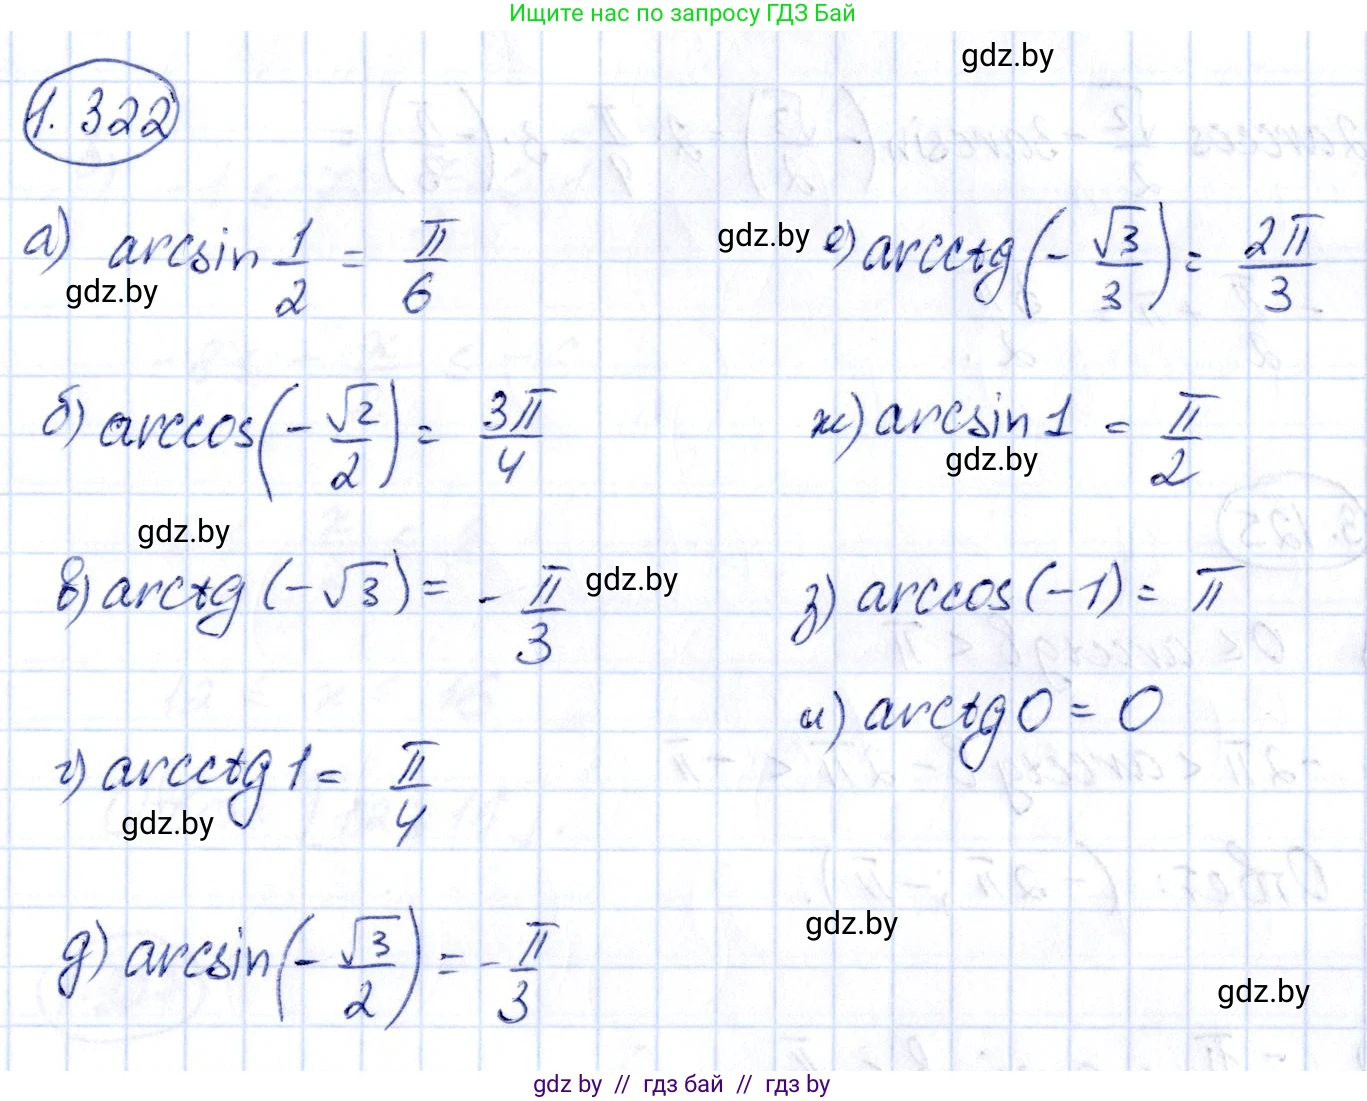 Ищите нас по запросу ГДЗ Бай
gdz.by
1.322
а) arcsin 1/2 = π/6
gdz.by
gdz.by
е) arcctg(-√3/3) = 2π/3
б) arccos(-√2/2) = 3π/4
ж) arcsin 1 = π/2
gdz.by
gdz.by
в) arctg(-√3) = -π/3
gdz.by
з) arccos(-1) = π
и) arctg 0 = 0
г) arcctg 1 = π/4
gdz.by
д) arcsin(-√3/2) = -π/3
gdz.by
gdz.by
gdz by // гдз бай // гдз by